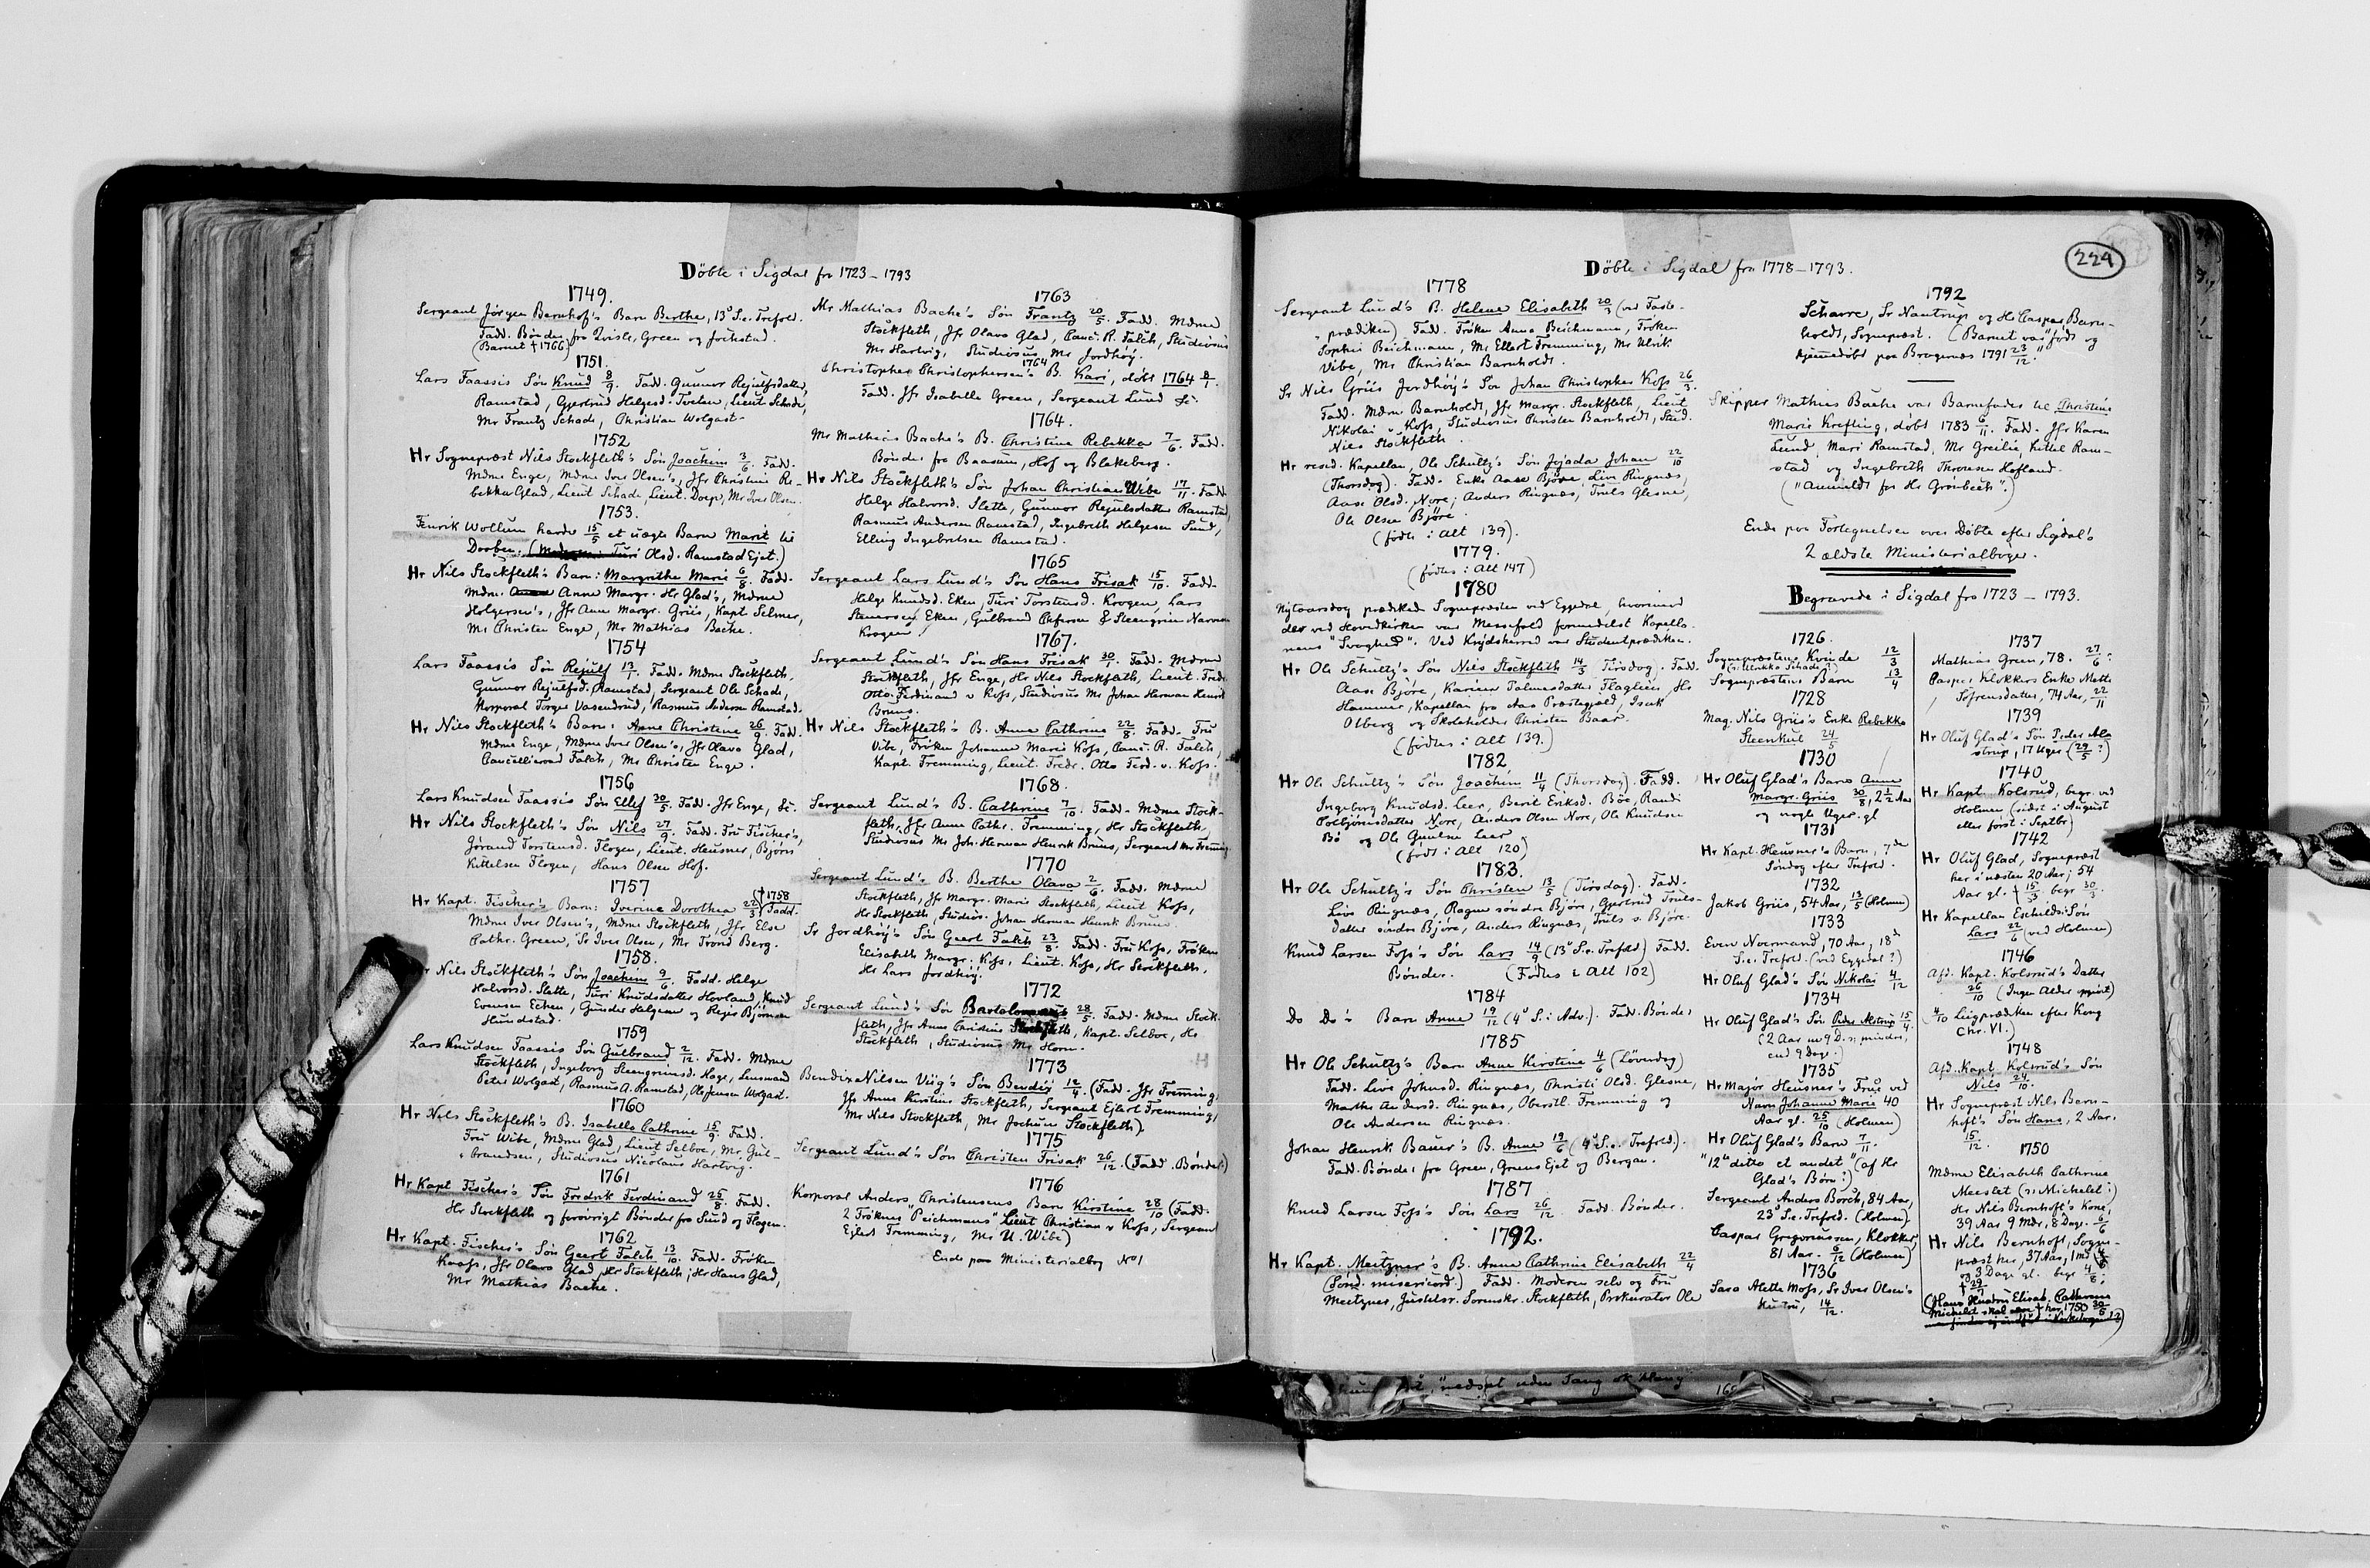 Döbte i Sigdal fra 1723 – 1793
1749.
Sergeant Jörgen Bernhof's Barn Berthe, 13de S.e. Trefold.
Fadd. Bönder fra Kvisle, Green og Jockstad.
(Barnet † 1766)
1751.
Lars Faassis Sön Knud 8/9. Fadd. Gunnor Rejulfsdatter
Ramstad, Gjertrud Helgesd. Tveten, Lieut. Schade,
Mr Frantz Schade, Christian Wolgast.
1752
Hr Sognepræst Nils Stockfleth's Sön Joachim 3/6. Fadd.
Mdme Enge, Mdme Iver Olsen's, Jfr Christine Re-
bekka Glad, Lieut Schade, Lieut. Dorp, Mr Iver Olsen.
1753.
Henrik Wollum havde 15/5 et uægte Barn Marit til
Daaben. Turi Olsd. Ramstad Ejet.)
Hr Nils Stockfleth's Barn: Margrethe Marie 6/8. Fadd.
Mdm. Anne Margr. Hr Glad's, Mdme
Holgersen's, Jfr Anne Margr. Griis, Kapt Selmer,
Mr Christen Enge, Mr Mathias Bache.
1754
Lars Faassis Sön Rejulf 13/1. Fadd. Mdme Stockfleth,
Gunnor Rejulfsd. Ramstad, Sergeant Ole Schade,
Korporal Torger Vasendrud, Rasmus Andersen Ramstad.
Hr Nils Stockfleth's Barn: Anne Christine 26/9. Fadd.
Mdme Enge, Mdme Iver Olsen's, Jfr Olava Glad,
Cancelliraad Falch, Mr Christen Enge.
1756
Lars Knudsen Faassis Sön Ellef 30/5. Fadd. Jfr Enge, &c.
Hr Nils Stockfleth's Sön Nils 27/9. Fadd. Fru Fischer's,
Jörand Torstensd. Flogen, Lieut. Heusner, Björn
Kittelsen Flogen, Hans Olsen Hof.
1757
Hr Kapt. Fischer's Barn: Iverine Dorothea 22/3 († 1758) Fadd.
Mdme Iver Olsen's, Mdme Stockfleth, Jfr Else
Cathr. Green, Sr Iver Olsen, Mr Trond Berg.
1758.
Nils Stockfleth's Sön Joachim 9/6. Fadd. Helge
Halvorsd. Slette, Turi Knudsdatter Hovland, Knud
Evensen Echen, Gunder Helgesen og Rejer Björnsen
Hundstad.
1759
Lars Knudsen Faassis Sön Gulbrand 2/12. Fadd. Mdme
Stockfleth, Ingeborg Steengrimsd. Hage, Lensmand
Peter Wolgast, Rasmus A. Ramstad, Ole Jensen Wolgast.
1760
Hr Nils Stockfleth's B. Isabelle Cathrine 15/9. Fadd.
Fru Wibe, Mdme Glad, Lieut Selboe, Mr Gul-
brandsen, Studiosus Nicolaus Hartvig.
1761
Hr Kapt Fischer's Sön Fredrik Ferdinand 25/8. Fadd.
Hr Stockfleth og forövrigt Bönder fra Sund og Flagen.
1762
Hr Kapt. Fischer's Sön Geert Falch 13/10. Fadd. Fröken
Koss, Jfr Olava Glad, Hr Stockfleth, Hr Hans Glad,
Mr Mathias Bache.
1763
Mr Mathias Bache's Sön Frantz 20/5. Fadd. Mdme
Stockfleth, Jfr Olava Glad, Canc. R. Falch, Studiosus
Mr Hartvig, Studiosus Mr Jordhöy.
1764
Christopher Christophersen's B. Kari, döbt 1764 8/1.
Fadd. Jfr Isabelle Green, Sergeant Lund &c.
1764.
Mr Mathias Bache's B. Christine Rebekka 7/6. Fadd.
Bönder fra Baasum, Hof og Blakeberg.
Hr Nils Stockfleth's Sön Johan Christian Wibe 17/11. Fadd.
Helge Halvorsd. Slette, Gunnor Rejulsdatter Ramstad
Rasmus Andersen Ramstad, Ingebreth Helgesen Sund,
Elling Ingebretsen Ramstad.
1765
Sergeant Lars Lund's Sön Hans Frisak 15/10. Fadd.
Helge Knudsd. Eken, Turi Torstensd. Krogen, Lars
Steenersen Eken, Gulbrand Pedersen & Steengrim
Krogen.
1767.
Sergeant Lund's Sön Hans Frisak 30/1. Fadd. Mdme
Stockfleth, Jfr Enge, Hr Nils Stockfleth, Lieut. Fredr.
Otto Ferdinand v Koss, Studiosus Mr Johan Herman Henrik
Bruns.
Hr Nils Stockfleth's B. Anne Cathrine 22/8. Fadd. Fru
Vibe, Fröken Johanne Marie Koss, Canc. R. Falch,
Kapt. Fremming, Lieut. Fredr. Otto Ferd. v. Koss.
1768.
Sergeant Lund's B. Cathrine 7/10. Fadd. Mdme Stock-
fleth, Jfr Anne Cathr. Fremming, Hr Stockfleth,
Studiosus Mr Joh. Herman Henrik Bruns, Sergeant Mr Fremming
1770
Sergeant Lund's B. Berthe Olava 2/6. Fadd. Mdme
Stockfleth, Jfr Margr. Marie Stockfleth, Lieut Koss,
Hr Stockfleth, Studios. Johan Herman Henrik Bruns.
Sr Jordhöy's Sön Geert Falch 23/8. Fadd. Fru Koss, Fröken
Elisabeth Margr. Koss, Lieut. Koss, Hr Stockfleth,
Hr Lars Jordhöy.
1772
Sergeant Lund's Sön Bartolomæus 28/5. Fadd. Mdme Stock-
fleth, Jfr Anne Christine Stockfleth, Kapt. Selboe, Hr
Stockfleth, Studiosus Mr Horn.
1773
Bendix Nilsen Viig's Sön Bendix 12/4. (Fadd. Jfr Fremming
Jfr Anne Kirstine Stockfleth, Sergeant Ejlert Fremming,
Mr Nils Stockfleth, Mr Jochum Stockfleth).
1775
Sergeant Lund's Sön Christen Frisak 26/12. (Fadd. Bönder.)
1776
Korporal Anders Christensens Barn Kirstine 28/10 (Fadd.
2 Fröknes "Peichmans" Lieut Christian v Koss, Sergeant
Eglert Fremming, Mr U. Wibe)
Ende paa Ministerialbog No 1
Döbte i Sigdal fra 1778 – 1793.
224
1778
Sergeant Lund's B. Helene Elisabeth 20/3 (ved Faste-
prædiken) Fadd. Fröken Anna Beichmann, Fröken
Sophie Beichmann, Mr Ellert Fremming, Mr Ulrik
Vibe, Mr Christian Barnholdt.
Sr Nils Griis Jordhöy's Sön Johan Christopher Koss 26/3.
Fadd. Mdme Barnholdt, Jfr Margr. Stockfleth, Lieut
Nikolai v Koss, Studiosus Christen Barnholdt, Stud.
Nils Stockfleth.
Hr resid. Kapellan, Ole Schultz's Sön Jojada Johan 22/10
(Thorsdag). Fadd. Enke Aase Björe, Live Ringnæs,
Aase Olsd. Nore, Anders Ringnæs, Truls Glesne,
Ole Olsen Björe.
(födte i alt 139).
1779.
(födtes i Alt 147)
1780
Nytaarsdag prædiked Sognepræsten ved Eggedal, hvorimod
der ved Hovedkirken var Messefald formedelst Kapella-
nens "Svaghed". Ved Krydsherred var Studentprædiken.
Hr Ole Schultz's Sön Nils Stockfleth 14/3 Tirsdag. Fadd.
Aase Björe, Karien Talmesdatter Flaglien, Hr
Hammer, Kapellan fra Aas Præstegjeld, Isak
Olberg og Skoleholder Christen Baar.
(födtes i Alt 139.)
1782
Hr Ole Schultz's Sön Joachim 11/4 (Thorsdag). Fadd.
Ingeborg Knudsd. Leer, Berit Eriksd. Böe, Randi
Torbjörnsdatter Nore, Anders Olsen Nore, Ole Knudsen
Bö og Ole Leer
(födt i Alt 120)
1783.
Hr Ole Schultz's Sön Christen 13/5 (Tirsdag). Fadd.
Live Ringnæs, Ragne söndre Björe, Gjertrud Truls-
datter söndre Björe, Anders Ringnæs, Truls s. Björe.
Knud Larsen Foss's Sön Lars 14/9 (13de S.e. Trefold) Fadd.
Bönder. (Födtes i Alt 102)
1784
Do Do's Barn Anne 19/12 (4de S. i Adv.). Fadd. Bönder
1785
Hr Ole Schultz's Barn Anne Kirstine 4/6 (Löverdag)
Fadd. Live Johnsd. Ringnæs, Christi Olsd. Glesne,
Marthe Andersd. Ringnæs, Oberstl. Fremming og
Ole Andersen Ringnæs.
Johan Henrik Bauer's B. Anne 19/6 (4de S.e. Trefold.).
Fadd. Bönder fra Green, Greens Ejet og Bergan.
1787
Knud Larsen Foss's Sön Lars 26/12. Fadd. Bönder.
1792.
Hr Kapt. Meitzner's B. Anne Cathrine Elisabeth 22/4
(Sönd. misericord.) Fadd. Moderen selv og Fru
Meitzner, Justitsr. Sorenskr. Stockfleth, Prokurator Ole
1792
Scharre, Sr Nantrup og Hr Caspar Barn-
holdt, Sognepræst. (Barnet var "födt og
hjemmedöbt paa Bragernæs 1791 23/12."
Skipper Mathias Bache var Barnefader til Christine
Marie Krefting, döbt 1783 6/11. Fadd. Jfr Karen
Lund, Mari Ramstad, Mr Greilie, Kittel Ram-
stad og Ingebreth Thoresen Hofland.
("Anmeldt for Hr Grönbech".)
Ende paa Fortegnelsen over Döbte efter Sigdal's
2 ældste Ministerialböger.
Begravede i Sigdal fra 1723 – 1793.
1726.
Sognepræstens Kvinde 12/3
(o: Ulrikka Schade?)
Sognepræstens Barn 13/4
1728
Mag. Nils Griis's Enke Rebekka
Steenkul 24/5
1730
Hr Oluf Glad's Barn Anne
Margr. Griis 30/8, 2 1/2 Aar
og nogle Uger gl
1731
Hr Kapt. Heusner's Barn, 7de
Söndag efter Trefold.
1732
Jakob Griis, 54 Aar, 13/5 (Holmen)
1733
Even Noermand, 70 Aar, 18de
S.e. Trefold. (ved Eggedal?)
Hr Oluf Glad's Sön Nikolai 4/12
1734
Hr Oluf Glad's Sön Peder Alstrup 15/4.
(2 Aar 9 D. mindre,
end 9 Dage.)
1735
Hr Major Heusner's Frue ved
Navn Johanne Marie 40
Aar gl. 25/10 (Holmen)
Hr Oluf Glad's Barn 7/11.
"12te ditto et andet" (af Hr
Glad's Börn?)
Sergeant Anders Borch, 84 Aar,
23de S.e. Trefold. (Holmen)
Caspar Gregoriussen, Klokker,
81 Aar. 6/12 (Holmen)
1736
Sara Alette Moss, Sr Iver Olsen's
Hustru, 14/12.
1737
Mathias Green, 78. 27/6.
Casper Klokkers Enke Mette
Söfrensdatter, 74 Aar, 22/11
1739
Hr Oluf Glad's Sön Peder Al-
strup, 17 Uger (29/5?)
1740
Hr Kapt. Kolsrud, begr. ved
Holmen (sidst i August
eller först i Septbr)
1742
Hr Oluf Glad, Sognepræst
her i næsten 20 Aar; 54
Aar gl. † 15/3 begr 30/3.
Hr Kapellan Eschilds Sön
Lars 22/6 (ved Holmen)
1746
Afd. Kapt. Kolsrud's Datter
26/10 (Ingen Alder opgivet)
(4/10 Liigprædiken efter Kong
Chr. VI.)
1748
Afd. Kapt. Kolsrud's Sön
Nils 24/10.
Hr Sognepræst Nils Bern-
hoft's Sön Hans, 2 Aar.
15/12.
1750
Mdme Elisabeth Cathrine
Meeslet (o: Michelet:)
Hr Nils Bernhoft's Kone,
39 Aar 9 Mdr, 8 Dage. 6/6
Hr Nils Bernhoft, Sogne-
præst her, 37 Aar, 1 Md
og 3 Dage gl. begr 4/8;
† 29/7
(Hans Hustru Elisab. Cathrine
Michelet skal være † her 1750 30/5